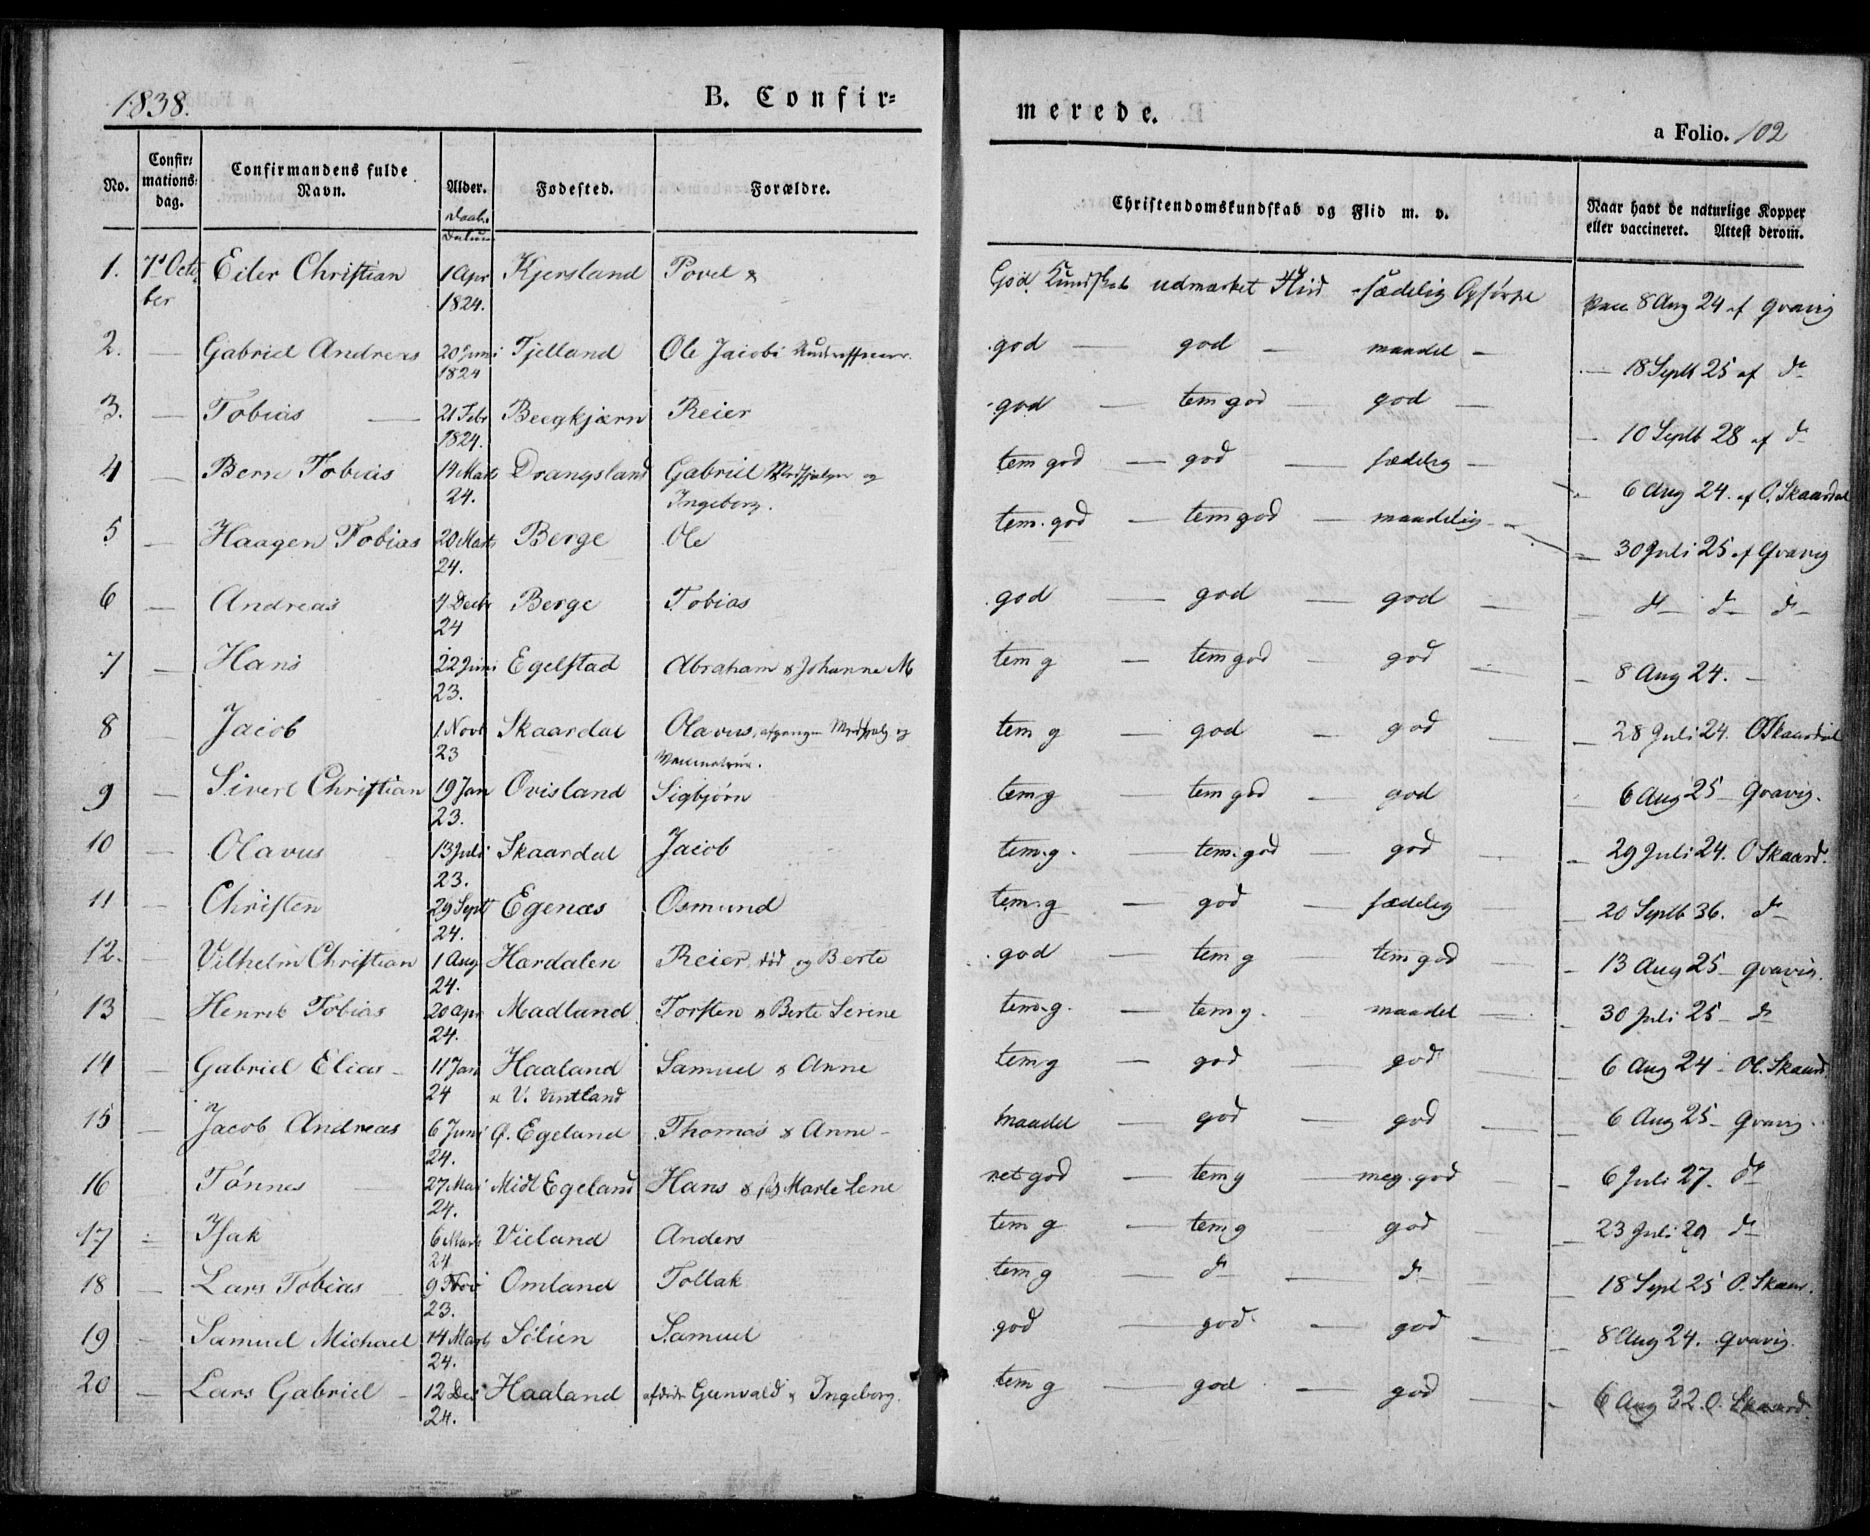 1838.
B. Confir=
merede.
a Folio. 102
No.
Confir=
mations=
dag.
Confirmandens fulde
Navn.
Alder.
Daabs
Datum
Fødested.
Forældre.
Christendomskundskab og Flid m. v.
Naar havt de naturlige Kopper
eller vaccineret. Attest derom.
1. 7d Octo Eiler Christian 1 Apr Kjersland Povel &
ber 1824.
God Kundskab udmærket Flid sædelig Opførsel Vacc 8 Aug 24 af Qvavig
2. — Gabriel Andreas 20 Juni Fjelland Ole Jacobi
1824
god — god — maadel — — 18 Septb 25 af do
3. — Tobias — 21 Febr Beegkjærn Reier
1824.
god — tem god — god — — 10 Septb 28 af do
4 — Berre Tobias 14 Marts Drangsland Gabriel og
24. Ingeborg.
tem god — god — sædelig — 6 Aug 24. af O. Skaardal
5 — Haagen Tobias 20 Marts Berge Ole
24.
tem. god — tem god — maadelig — — 30 Juli 25 af Qvavig
6 — Andreas 4 Decbr Berge Tobias
24
god — god — god — — do do do
7 — Hans 22 Juni Egelstad Abraham & Johanne M
23.
tem g — tem god — god — 8 Aug 24. —
8 — Jacob 1 Novb Skaardal Olavus, og
23
tem g — god — god — 28 Juli 24. O Skaardal
9 — Sivert Christian 19 Jan Ovisland Sigbjørn
23.
tem g — tem god — god — 6 Aug 25 — Qvavig.
10 — Olavus 13 Juli Skaardal Jacob
23.
tem. g. — tem. god — god — — 29 Juli 24. O Skaard.
11 — Christen 29 Septb Egenæs Osmund
24.
tem. g — god — sædelig — 20 Septb 36. do
12. — Vilhelm Christian 1 Aug Hardalen Reier, død og Berte
24.
god — tem g — tem god — — 13 Aug 25 — Qvavig.
13 — Henrik Tobias 20 Apr Madland Torsten & Berte Serine
24.
tem. g. — tem g. — maadel — — 30 Juli 25 — do
14 — Gabriel Elias — 11 Jan Haaland Samuel & Anne
24 V. Vintland
tem g — god — god — 6 Aug 24 — Ol. Skaard.
15 — Jacob Andreas 6 Juni Ø. Egeland Thomas & Anne —
24.
maadel — god — god — — 6 Aug 25 — Qvavig.
16 Tønnes — 27 Mai Midt Egeland Hans & Marte Lene
24.
net god — tem g — meg. god — — 6 Juli 27. do
17 — Isak 6 Marts Vieland Anders
24
tem g — tem g god — — 23 Juli 29 do
18 — Lars Tobias 9 Nov Omland Tollak
23.
tem g — do — do — — 18 Sept 25 O. Skaar.
19 — Samuel Michael 14 Marts Sølien Samuel
24.
god — god — god — — 8 Aug 24. Qvavig.
20 — Lars Gabriel — 12 Dec Haaland Gunvald & Ingeborg.
24.
tem g — god — god — — 6 Aug 32. O. Skaard.